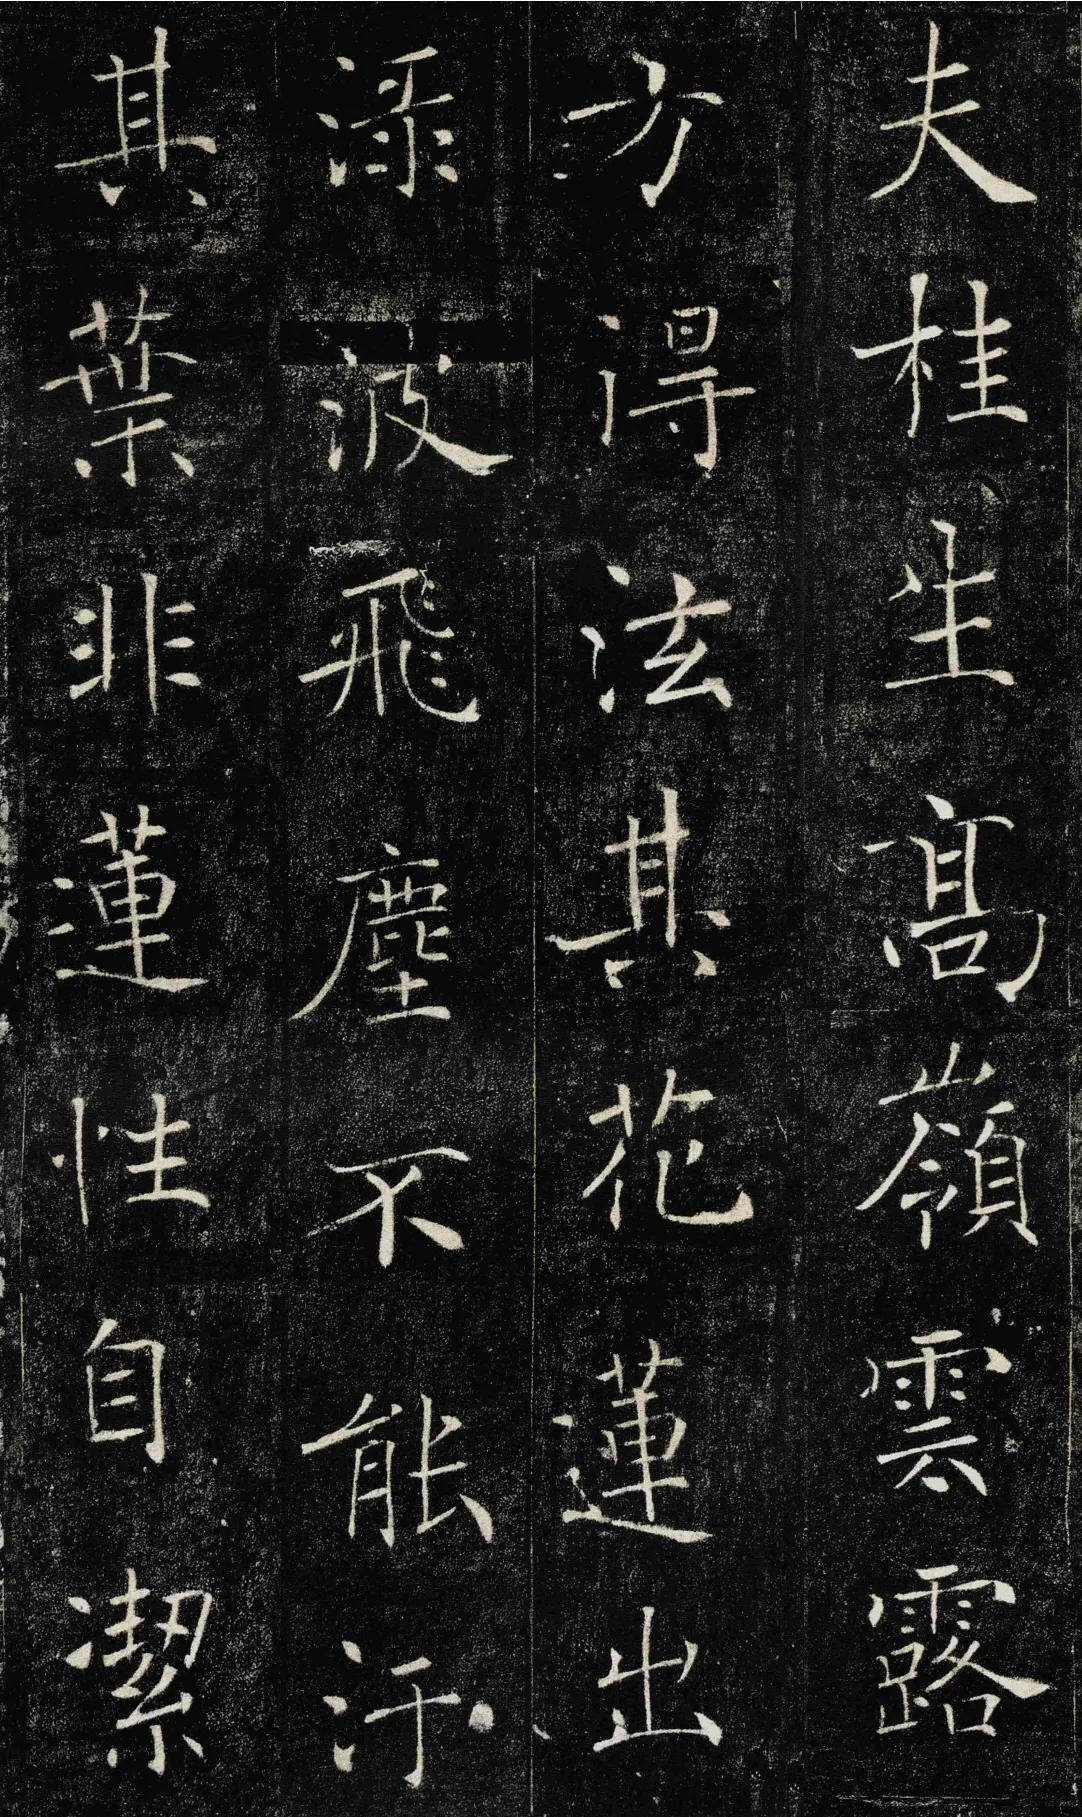 夫桂生髙嶺雲露
方得泫其花蓮出
渌波飛塵不能汙
其葉非蓮性自潔